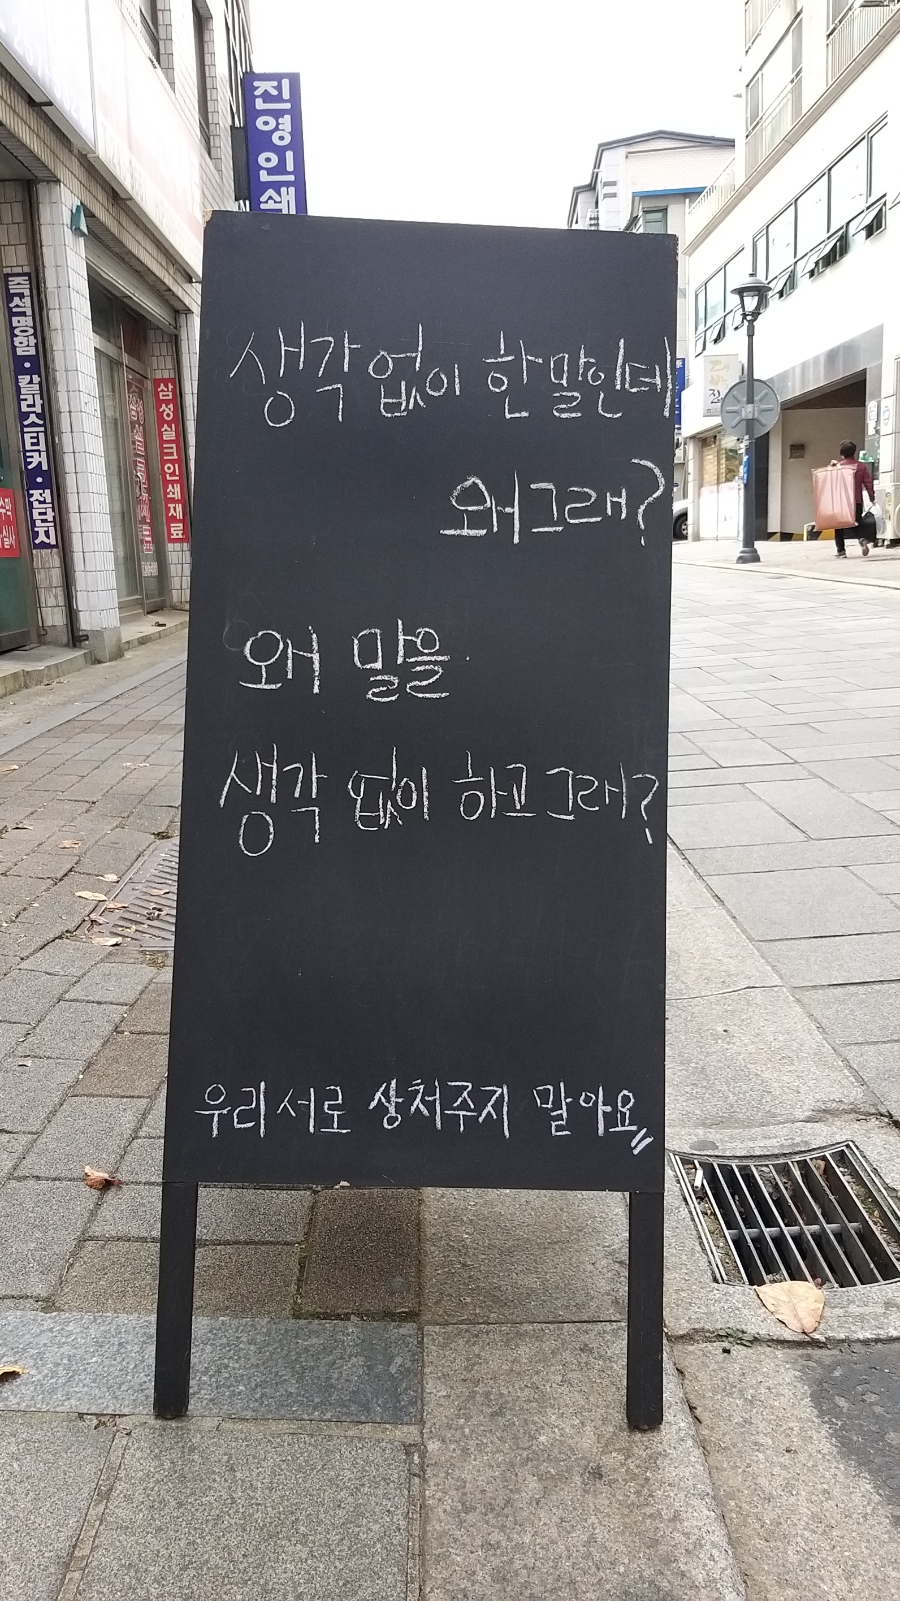 진영인쇄
즉석명함·칼라스티커·전단지
삼성실크인쇄재료
생각 없이 한 말인데
왜 그래?
왜 말을
생각 없이 하고 그래?
우리 서로 상처주지 말아요〃